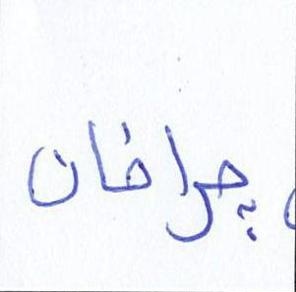 چراغان